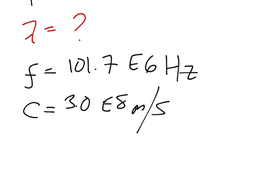 λ = ?
f = 101.7 E6 Hz
C = 3.0 E8 m/s